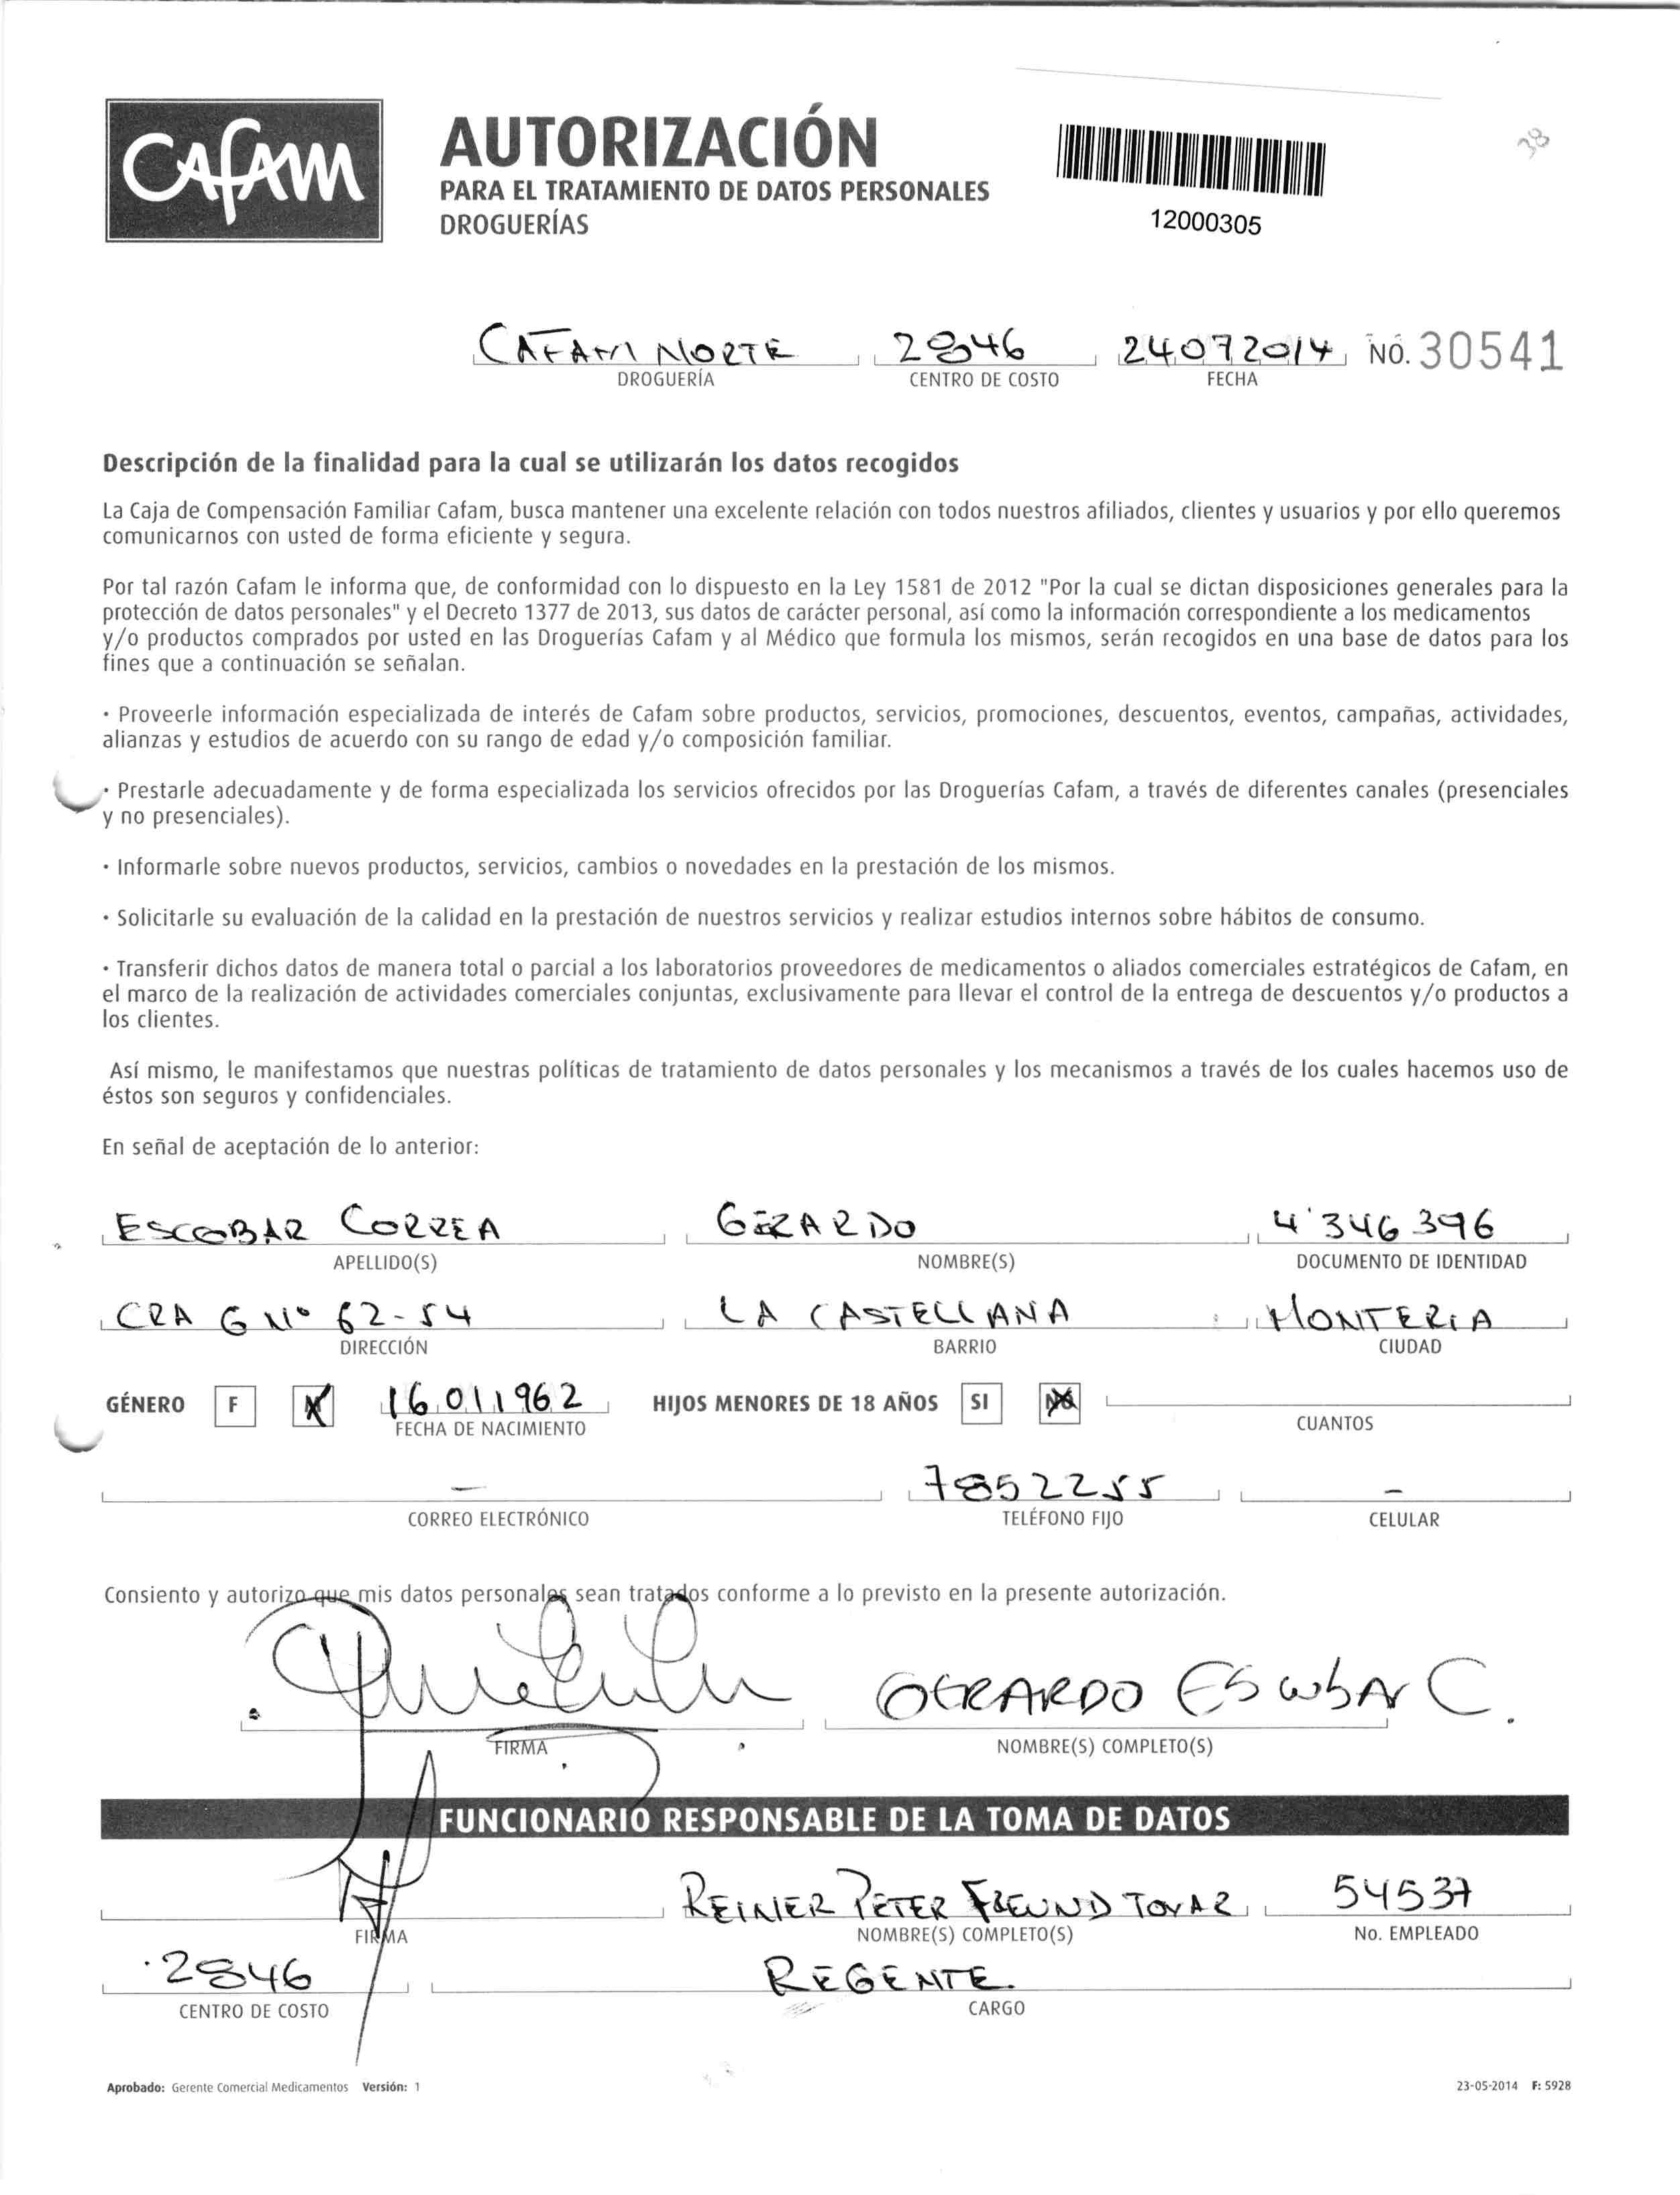 Cafam
AUTORIZACIÓN
PARA EL TRATAMIENTO DE DATOS PERSONALES
DROGUERÍAS
12000305
38
CAFAM NORTE 2846 24072014 NO. 30541
DROGUERÍA CENTRO DE COSTO FECHA
Descripción de la finalidad para la cual se utilizarán los datos recogidos
La Caja de Compensación Familiar Cafam, busca mantener una excelente relación con todos nuestros afiliados, clientes y usuarios y por ello queremos
comunicarnos con usted de forma eficiente y segura.
Por tal razón Cafam le informa que, de conformidad con lo dispuesto en la Ley 1581 de 2012 "Por la cual se dictan disposiciones generales para la
protección de datos personales" y el Decreto 1377 de 2013, sus datos de carácter personal, así como la información correspondiente a los medicamentos
y/o productos comprados por usted en las Droguerías Cafam y al Médico que formula los mismos, serán recogidos en una base de datos para los
fines que a continuación se señalan.
· Proveerle información especializada de interés de Cafam sobre productos, servicios, promociones, descuentos, eventos, campañas, actividades,
alianzas y estudios de acuerdo con su rango de edad y/o composición familiar.
· Prestarle adecuadamente y de forma especializada los servicios ofrecidos por las Droguerías Cafam, a través de diferentes canales (presenciales
y no presenciales).
· Informarle sobre nuevos productos, servicios, cambios o novedades en la prestación de los mismos.
· Solicitarle su evaluación de la calidad en la prestación de nuestros servicios y realizar estudios internos sobre hábitos de consumo.
· Transferir dichos datos de manera total o parcial a los laboratorios proveedores de medicamentos o aliados comerciales estratégicos de Cafam, en
el marco de la realización de actividades comerciales conjuntas, exclusivamente para llevar el control de la entrega de descuentos y/o productos a
los clientes.
Así mismo, le manifestamos que nuestras políticas de tratamiento de datos personales y los mecanismos a través de los cuales hacemos uso de
éstos son seguros y confidenciales.
En señal de aceptación de lo anterior:
ESCOBAR CORREA GERARDO 4'346396
APELLIDO(S) NOMBRE(S) DOCUMENTO DE IDENTIDAD
CRA 6 Nº 62-54 LA CASTELLANA MONTERIA
DIRECCIÓN BARRIO CIUDAD
GÉNERO F M 16011962 HIJOS MENORES DE 18 AÑOS SI NO
FECHA DE NACIMIENTO CUANTOS
- 7852255 -
CORREO ELECTRÓNICO TELÉFONO FIJO CELULAR
Consiento y autorizo que mis datos personales sean tratados conforme a lo previsto en la presente autorización.
GERARDO ESCOBAR C.
FIRMA NOMBRE(S) COMPLETO(S)
FUNCIONARIO RESPONSABLE DE LA TOMA DE DATOS
REINIER PETER FREUND TOVAR 54537
FIRMA NOMBRE(S) COMPLETO(S) No. EMPLEADO
2846 REGENTE.
CENTRO DE COSTO CARGO
Aprobado: Gerente Comercial Medicamentos Versión: 1 23-05-2014 F: 5928